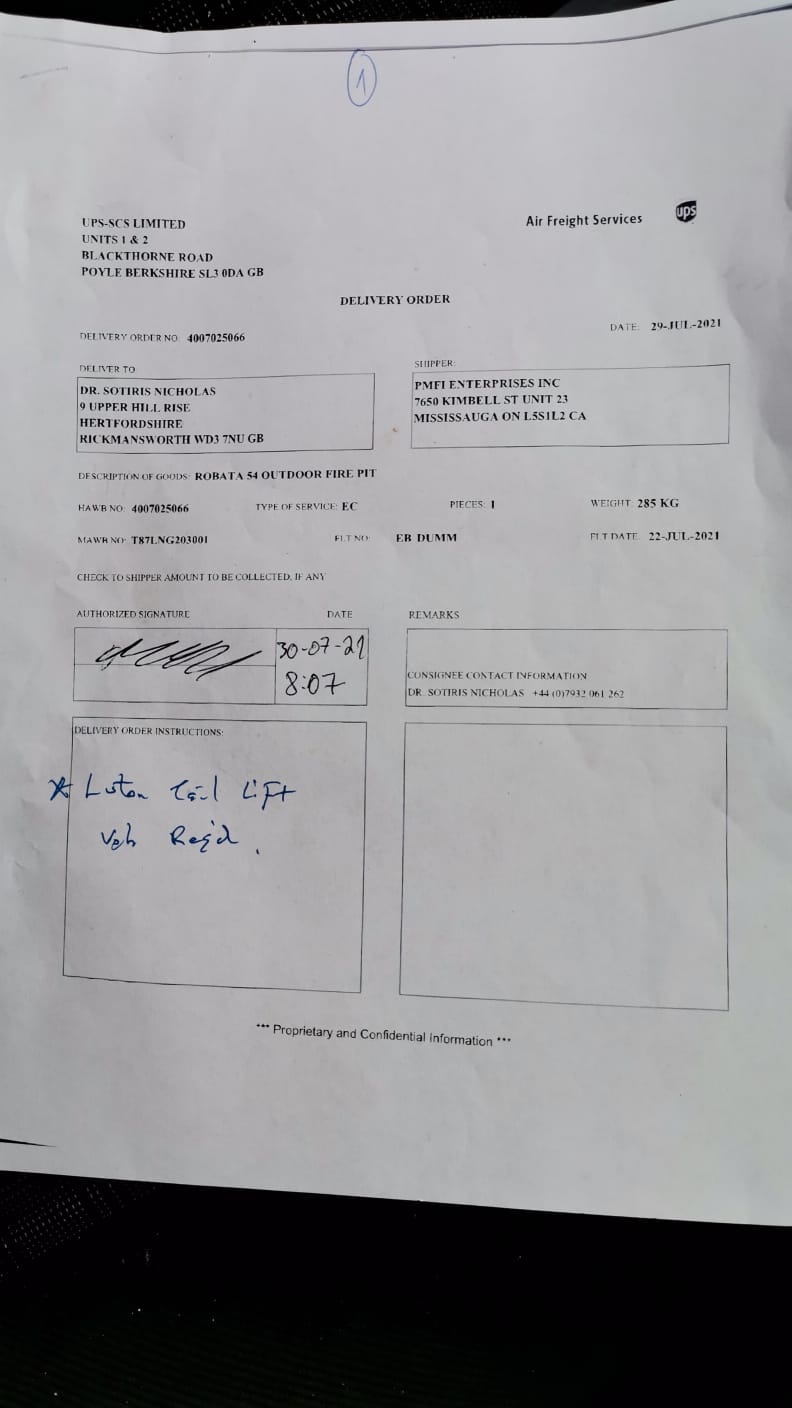 1
UPS-SCS LIMITED
UNITS 1 & 2
BLACKTHORNE ROAD
POYLE BERKSHIRE SL3 0DA GB
Air Freight Services
ups
DELIVERY ORDER
DELIVERY ORDER NO: 4007025066
DATE: 29-JUL-2021
DELIVER TO
DR. SOTIRIS NICHOLAS
9 UPPER HILL RISE
HERTFORDSHIRE
RICKMANSWORTH WD3 7NU GB
SHIPPER:
PMFI ENTERPRISES INC
7650 KIMBELL ST UNIT 23
MISSISSAUGA ON L5S1L2 CA
DESCRIPTION OF GOODS: ROBATA 54 OUTDOOR FIRE PIT
HAWB NO: 4007025066 TYPE OF SERVICE: EC PIECES: 1 WEIGHT: 285 KG
MAWB NO: T87LNG203001 FLT NO: EB DUMM FLT DATE: 22-JUL-2021
CHECK TO SHIPPER AMOUNT TO BE COLLECTED, IF ANY
AUTHORIZED SIGNATURE DATE
30-07-21
8:07
REMARKS
CONSIGNEE CONTACT INFORMATION
DR. SOTIRIS NICHOLAS +44 (0)7932 061 262
DELIVERY ORDER INSTRUCTIONS:
* Luton Tail Lift
Veh Req'd.
*** Proprietary and Confidential Information ***